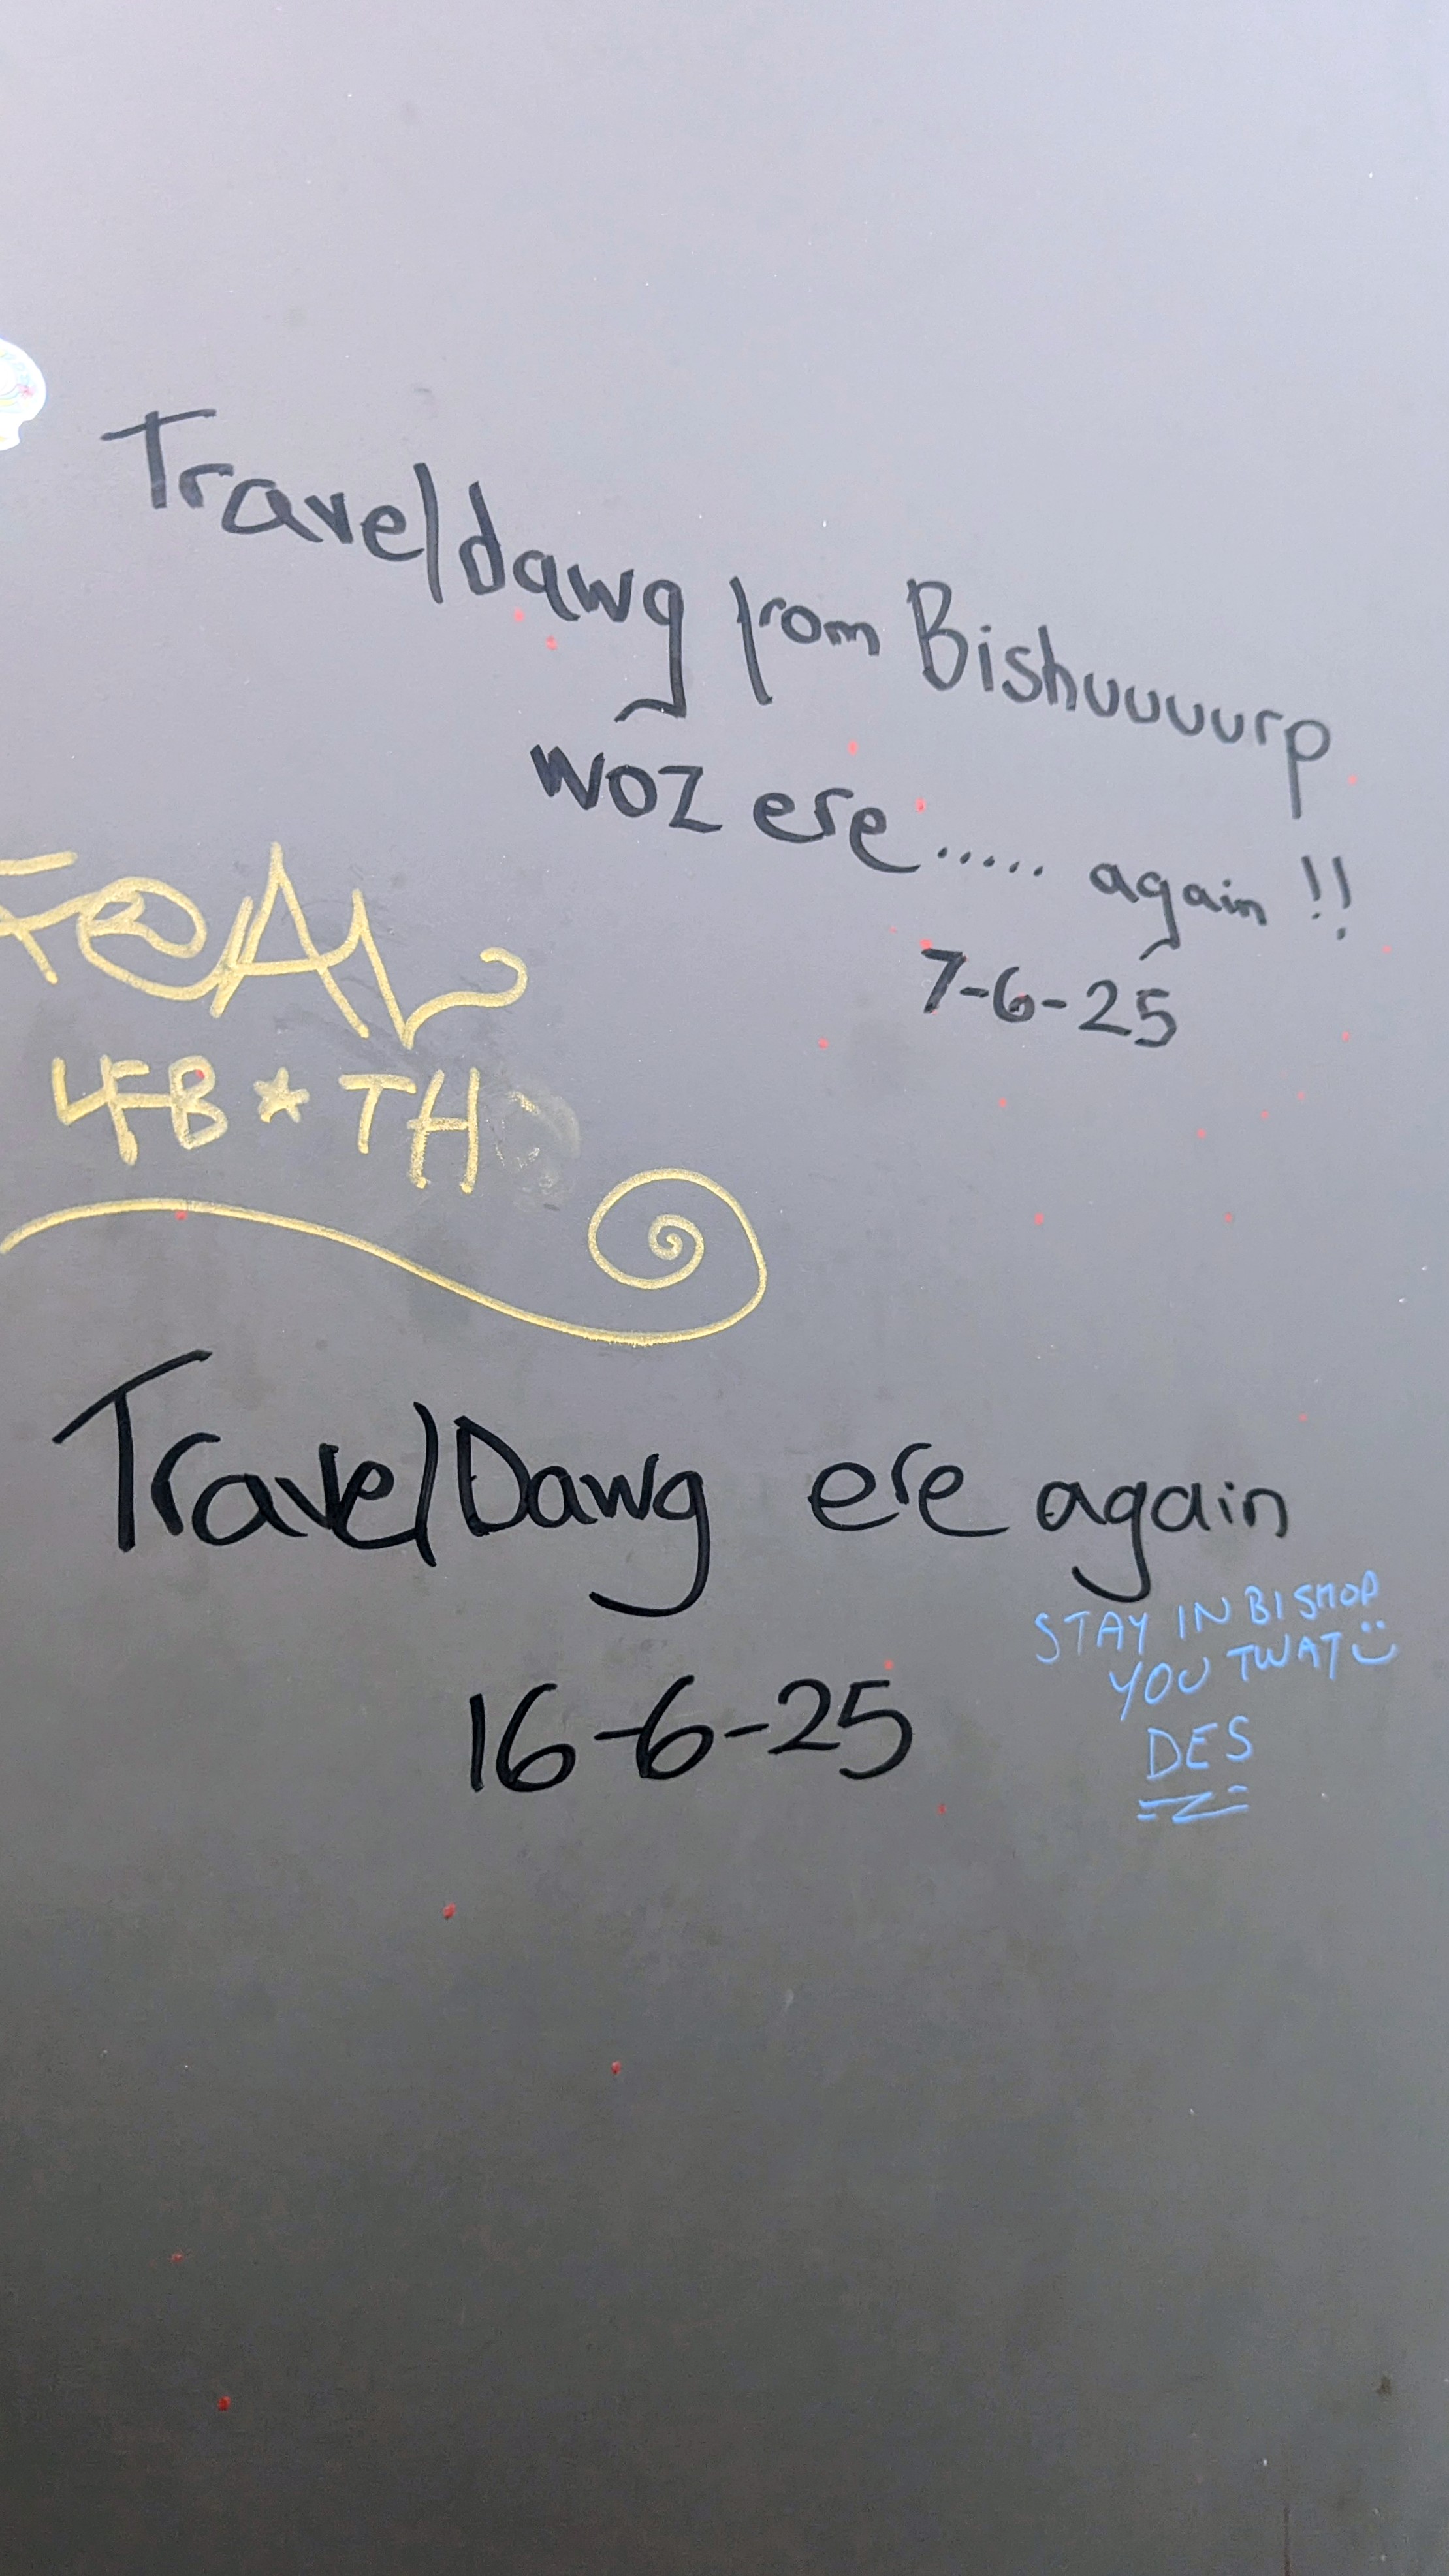 Traveldawg from Bishuuuurp
woz ere..... again !!
7-6-25
4FB ★ TH
TravelDawg ere again
STAY IN BISHOP
YOU TWAT
DES
16-6-25